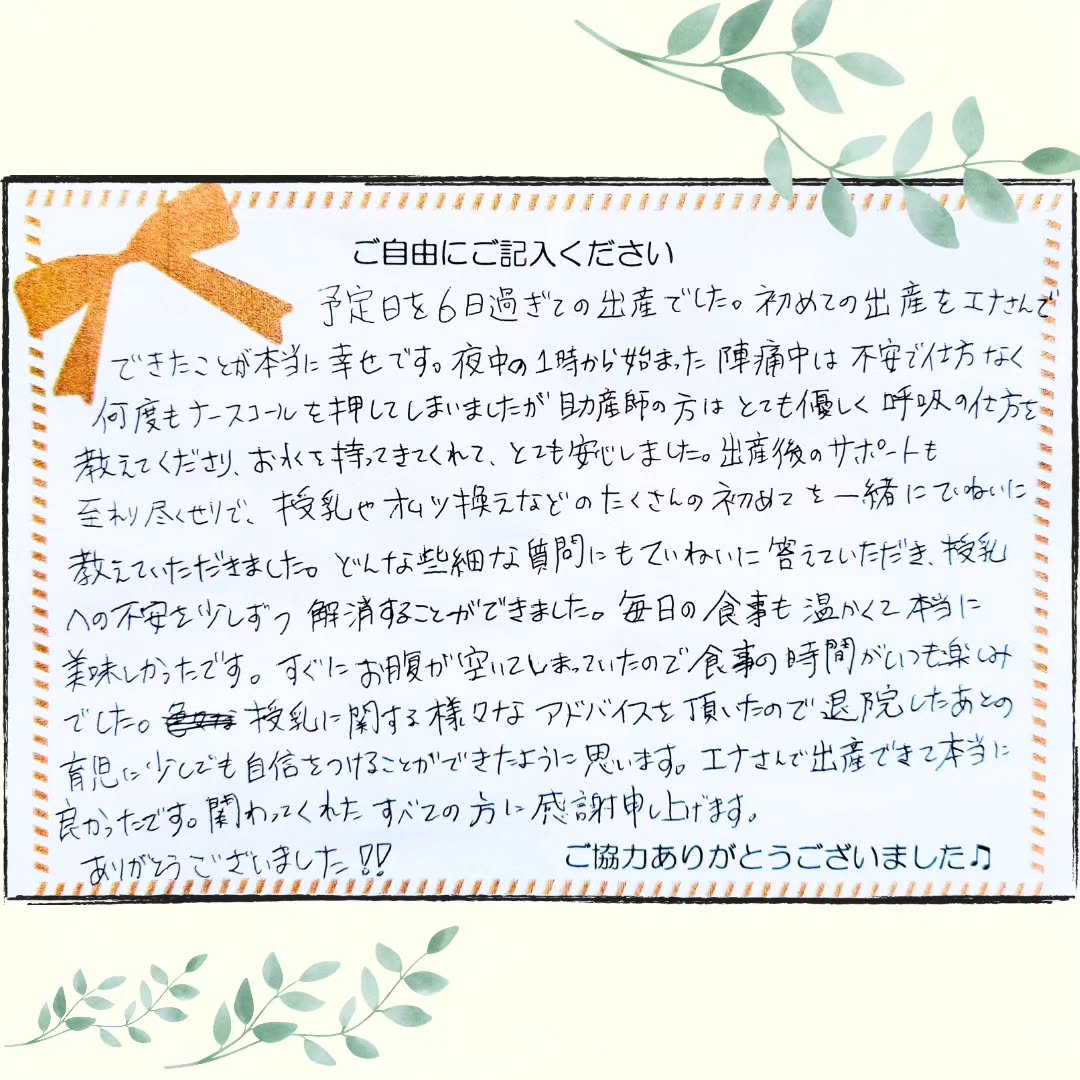 ご自由にご記入ください
予定日を6日過ぎての出産でした。初めての出産をエナさんで
できたことが本当に幸せです。夜中の1時から始まった陣痛中は不安で仕方なく
何度もナースコールを押してしまいましたが助産師の方はとても優しく呼吸の仕方を
教えてくださり、お水を持ってきてくれて、とても安心しました。出産後のサポートも
至れり尽くせりで、授乳やオムツ換えなどのたくさんの初めてを一緒にていねいに
教えていただきました。どんな些細な質問にもていねいに答えていただき、授乳
への不安を少しずつ解消することができました。毎日の食事も温かくて本当に
美味しかったです。すぐにお腹が空いてしまっていたので食事の時間がいつも楽しみ
でした。授乳に関する様々なアドバイスを頂いたので退院したあとの
育児に少しでも自信をつけることができたように思います。エナさんで出産できて本当に
良かったです。関わってくれたすべての方に感謝申し上げます。
ありがとうございました!!
ご協力ありがとうございました♫